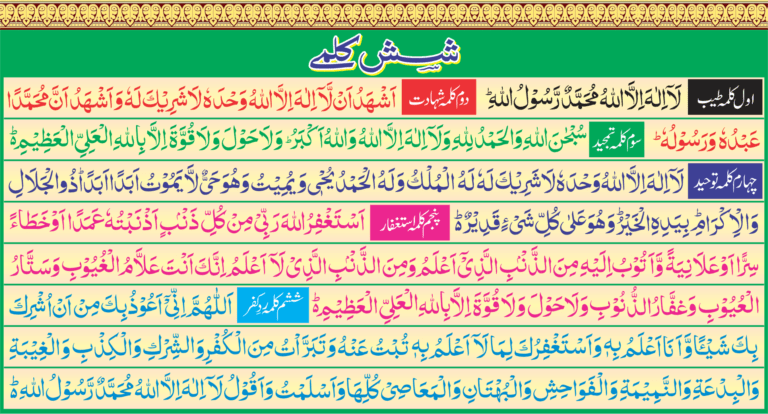 شش کلمے
اول کلمہ طیب لَآ اِلٰهَ اِلَّا اللهُ مُحَمَّدٌ رَّسُوْلُ اللهِ ؕ دوم کلمہ شہادت اَشْهَدُ اَنْ لَّآ اِلٰهَ اِلَّا اللهُ وَحْدَهٗ لَا شَرِيْكَ لَهٗ وَاَشْهَدُ اَنَّ مُحَمَّدًا
عَبْدُهٗ وَرَسُوْلُهٗ ؕ سوم کلمہ تمجید سُبْحٰنَ اللهِ وَالْحَمْدُ لِلّٰهِ وَلَآ اِلٰهَ اِلَّا اللهُ وَاللهُ اَكْبَرُ ؕ وَلَا حَوْلَ وَلَا قُوَّةَ اِلَّا بِاللهِ الْعَلِيِّ الْعَظِيْمِ ؕ
چہارم کلمہ توحید لَآ اِلٰهَ اِلَّا اللهُ وَحْدَهٗ لَا شَرِيْكَ لَهٗ لَهُ الْمُلْكُ وَلَهُ الْحَمْدُ يُحْيٖ وَيُمِيْتُ وَهُوَ حَيٌّ لَّا يَمُوْتُ اَبَدًا اَبَدًا ؕ ذُو الْجَلَالِ
وَالْاِكْرَامِ ؕ بِيَدِهِ الْخَيْرُ ؕ وَهُوَ عَلٰى كُلِّ شَيْءٍ قَدِيْرٌ ؕ پنجم کلمہ استغفار اَسْتَغْفِرُ اللهَ رَبِّيْ مِنْ كُلِّ ذَنْۢبٍ اَذْنَبْتُهٗ عَمَدًا اَوْ خَطَاءً
سِرًّا اَوْ عَلَانِيَةً وَّاَتُوْبُ اِلَيْهِ مِنَ الذَّنْۢبِ الَّذِيْٓ اَعْلَمُ وَمِنَ الذَّنْۢبِ الَّذِيْ لَآ اَعْلَمُ اِنَّكَ اَنْتَ عَلَّامُ الْغُيُوْبِ وَسَتَّارُ
الْعُيُوْبِ وَغَفَّارُ الذُّنُوْبِ وَلَا حَوْلَ وَلَا قُوَّةَ اِلَّا بِاللهِ الْعَلِيِّ الْعَظِيْمِ ؕ ششم کلمہ ردِّ کفر اَللّٰهُمَّ اِنِّيْٓ اَعُوْذُ بِكَ مِنْ اَنْ اُشْرِكَ
بِكَ شَيْئًا وَّاَنَا اَعْلَمُ بِهٖ وَاَسْتَغْفِرُكَ لِمَا لَآ اَعْلَمُ بِهٖ تُبْتُ عَنْهُ وَتَبَرَّأْتُ مِنَ الْكُفْرِ وَالشِّرْكِ وَالْكِذْبِ وَالْغِيْبَةِ
وَالْبِدْعَةِ وَالنَّمِيْمَةِ وَالْفَوَاحِشِ وَالْبُهْتَانِ وَالْمَعَاصِيْ كُلِّهَا وَاَسْلَمْتُ وَاَقُوْلُ لَآ اِلٰهَ اِلَّا اللهُ مُحَمَّدٌ رَّسُوْلُ اللهِ ؕ